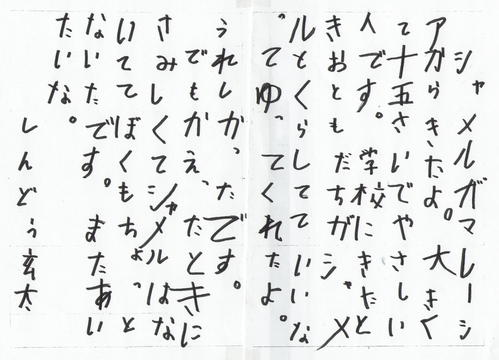 シャメルガマレーシ
アからきたよ。大きく
て十五さいでやさしい
人です。学校にきたと
きおともだちがシャメ
ルとくらしてていいな
ってゆってくれたよ。
うれしかったです。
でもかえったときに
さみしくてシャメルはな
いててぼくもちょっと
ないたです。またあい
たいな。
しんどう玄太